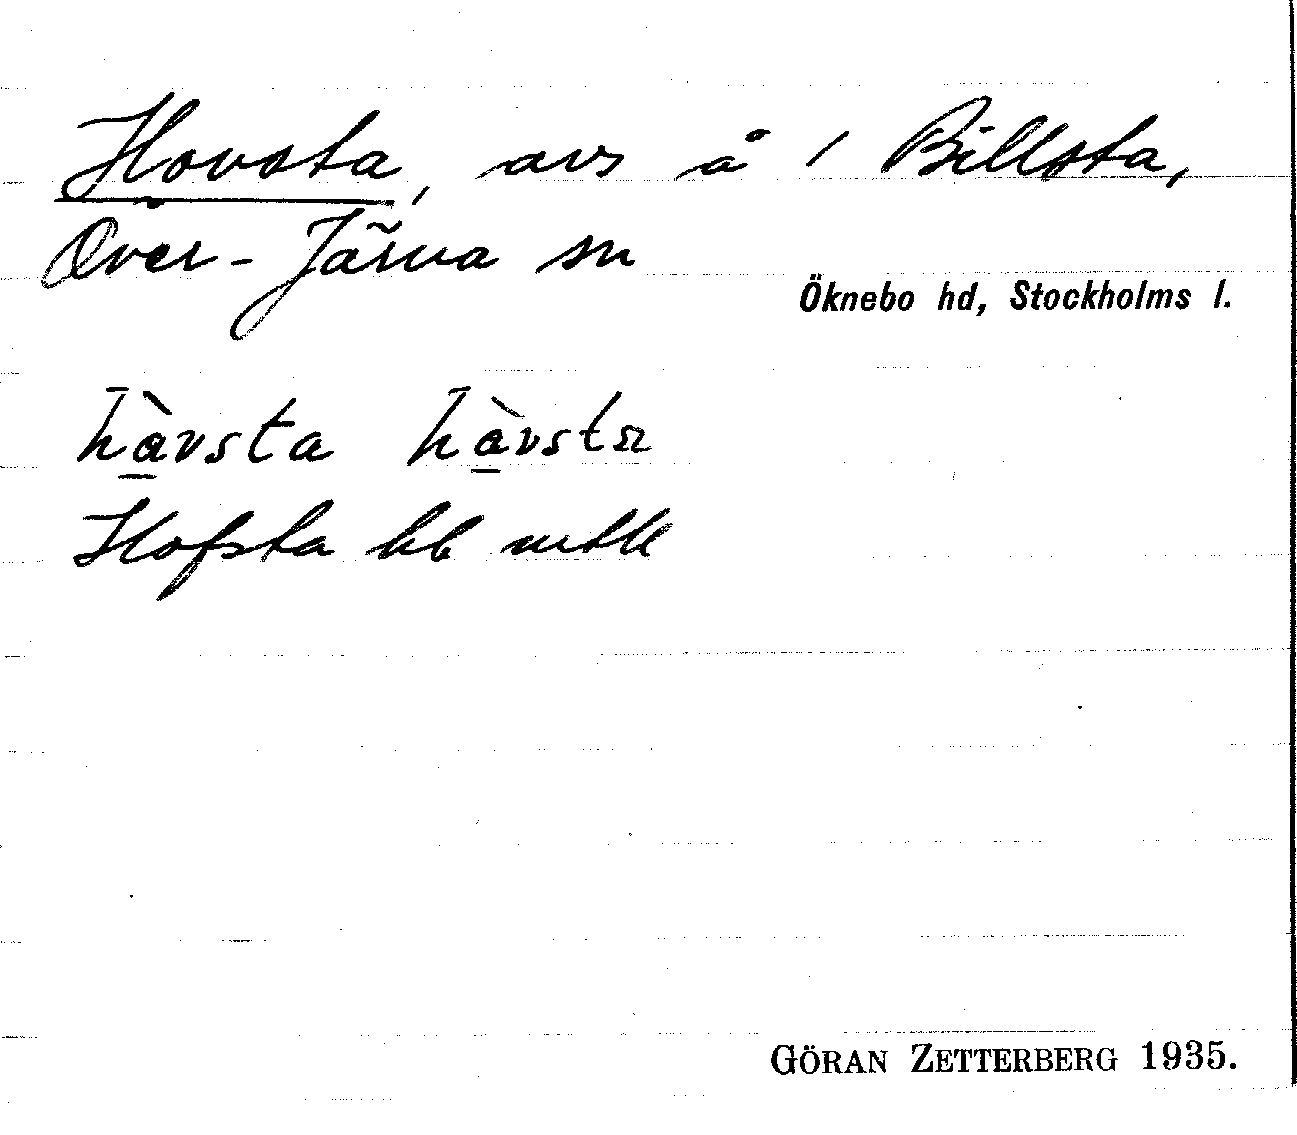 Hovsta, avs å 1 Billsta,
Över-Järna sn
Öknebo hd, Stockholms l.
hàvsta hàvstα
Hofsta hb mtlk
GÖRAN ZETTERBERG 1935.